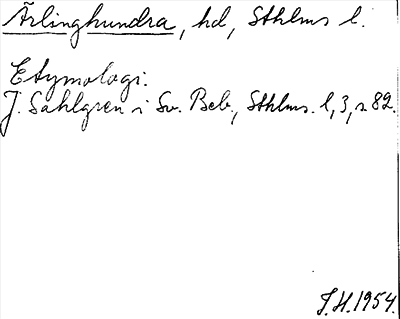 Ärlinghundra, hd, Sthlms l.
Etymologi.
J. Sahlgren i Sv. Beb., Sthlms. l, 3, s 82.
J.H. 1954.